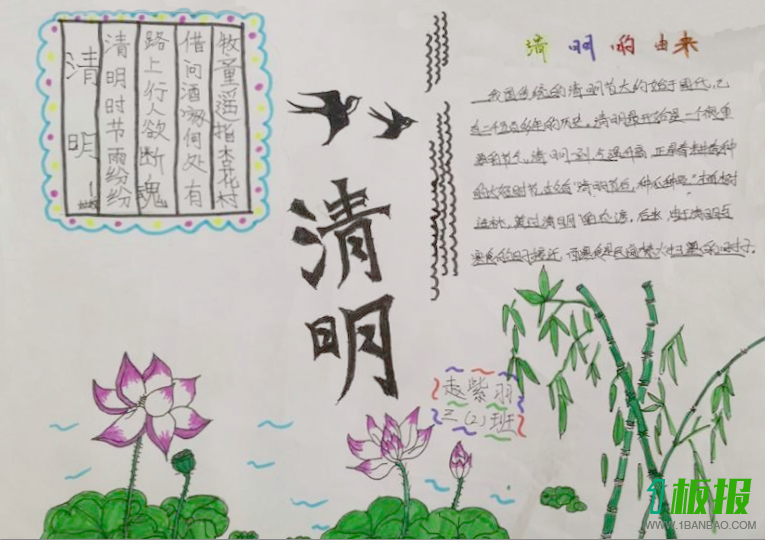 清明
清明时节雨纷纷
路上行人欲断魂
借问酒家何处有
牧童遥指杏花村
清明
清明的由来
我国传统的清明节大约始于周代,已
有二千五百多年的历史。清明最开始是一个很重
要的节气,清明一到,气温升高,正是春耕春种
的大好时节,故有"清明前后,种瓜种豆"。"植树
造林,莫过清明"的农谚。后来,由于清明与
寒食的日子接近,而寒食是民间禁火扫墓的日子.
赵紫羽
三(2)班
板报
WWW.1BANBAO.COM